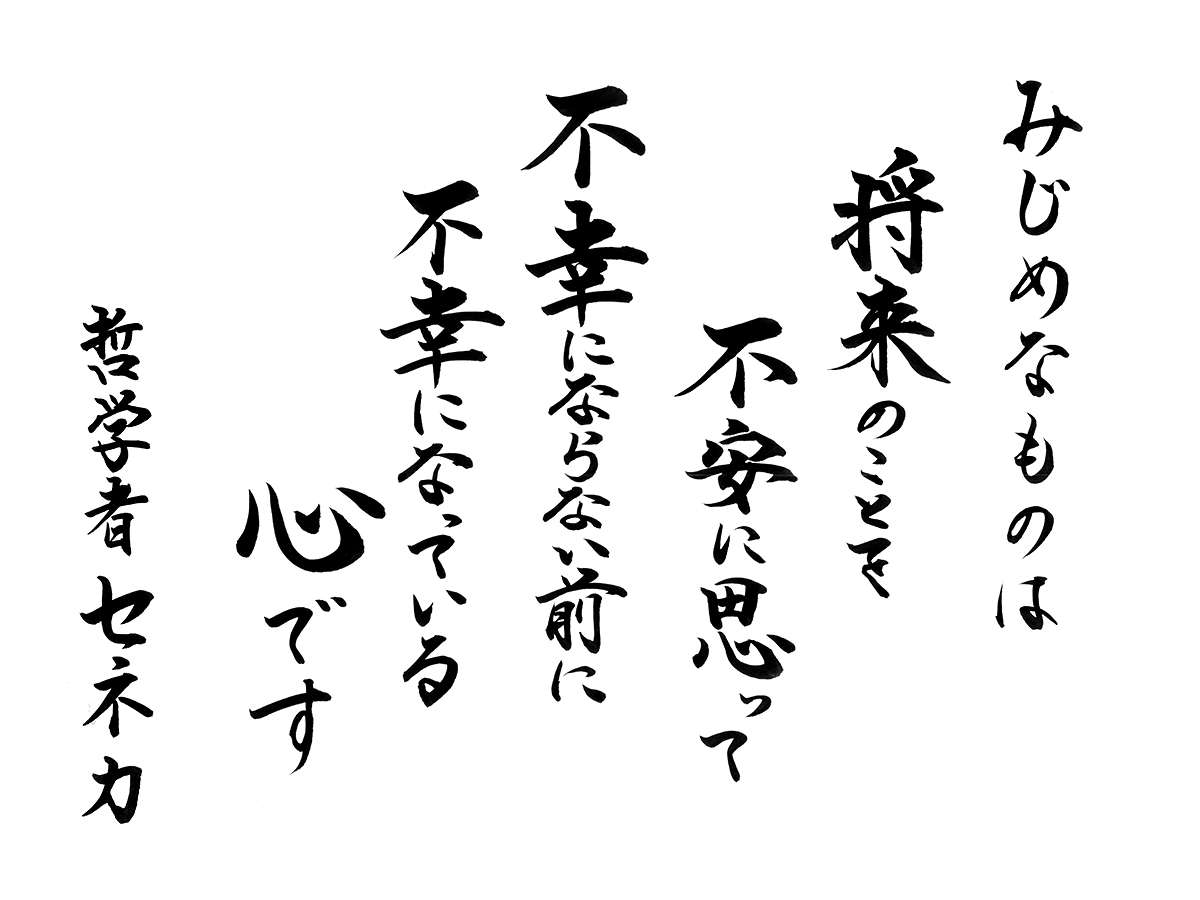 みじめなものは
将来のことを
不安に思って
不幸にならない前に
不幸になっている
心です
哲学者 セネカ